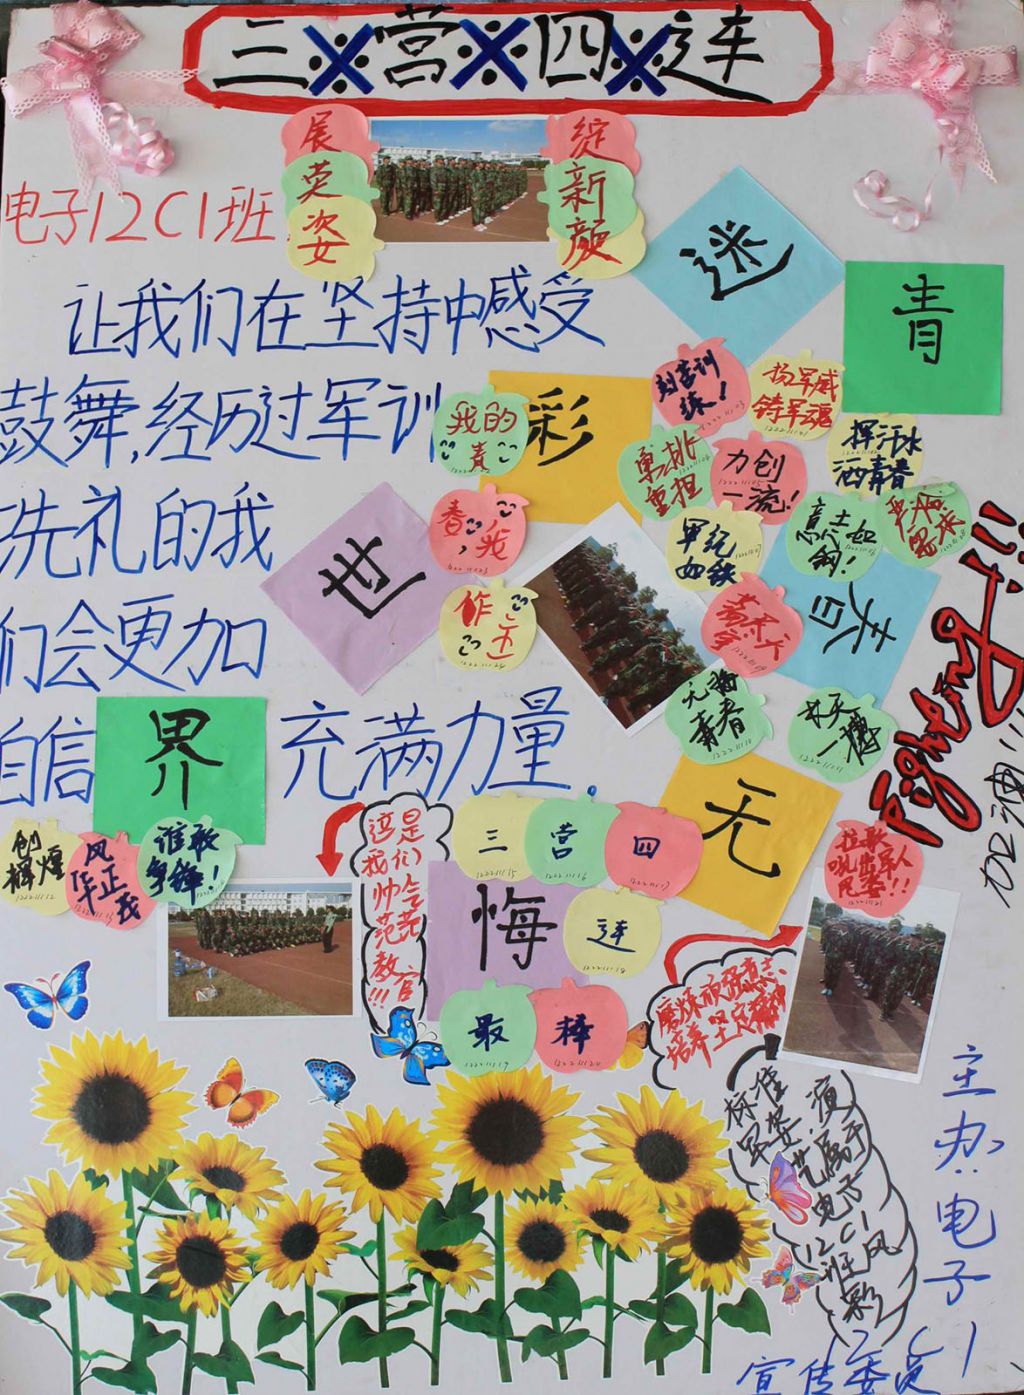 三※营※四※连
展英姿
绽新颜
电子12C1班
让我们在坚持中感受
鼓舞,经历过军训
洗礼的我
们会更加
自信
充满力量.
迷
彩
世
界
青
春
无
悔
我的
青
春,我
作主
刻苦训
练!
扬军威
铸军魂
勇挑
重担
力创
一流!
挥汗水
洒青春
军纪
如铁
意志如
钢!
严格
要求
无悔
青春
Fighting!!!
加油!!!
创
辉煌
风
华正
茂
谁敢
争锋!
这是
我们
帅气
范范
教官
!!!
三
营
四
连
最
棒
拉歌
吼出军人
风姿!!
磨炼顽强意志、
培养坚定精神
标准
军姿.演
艺属于
电子
12C1
班风
彩
主办:电子
12C1
宣传委员